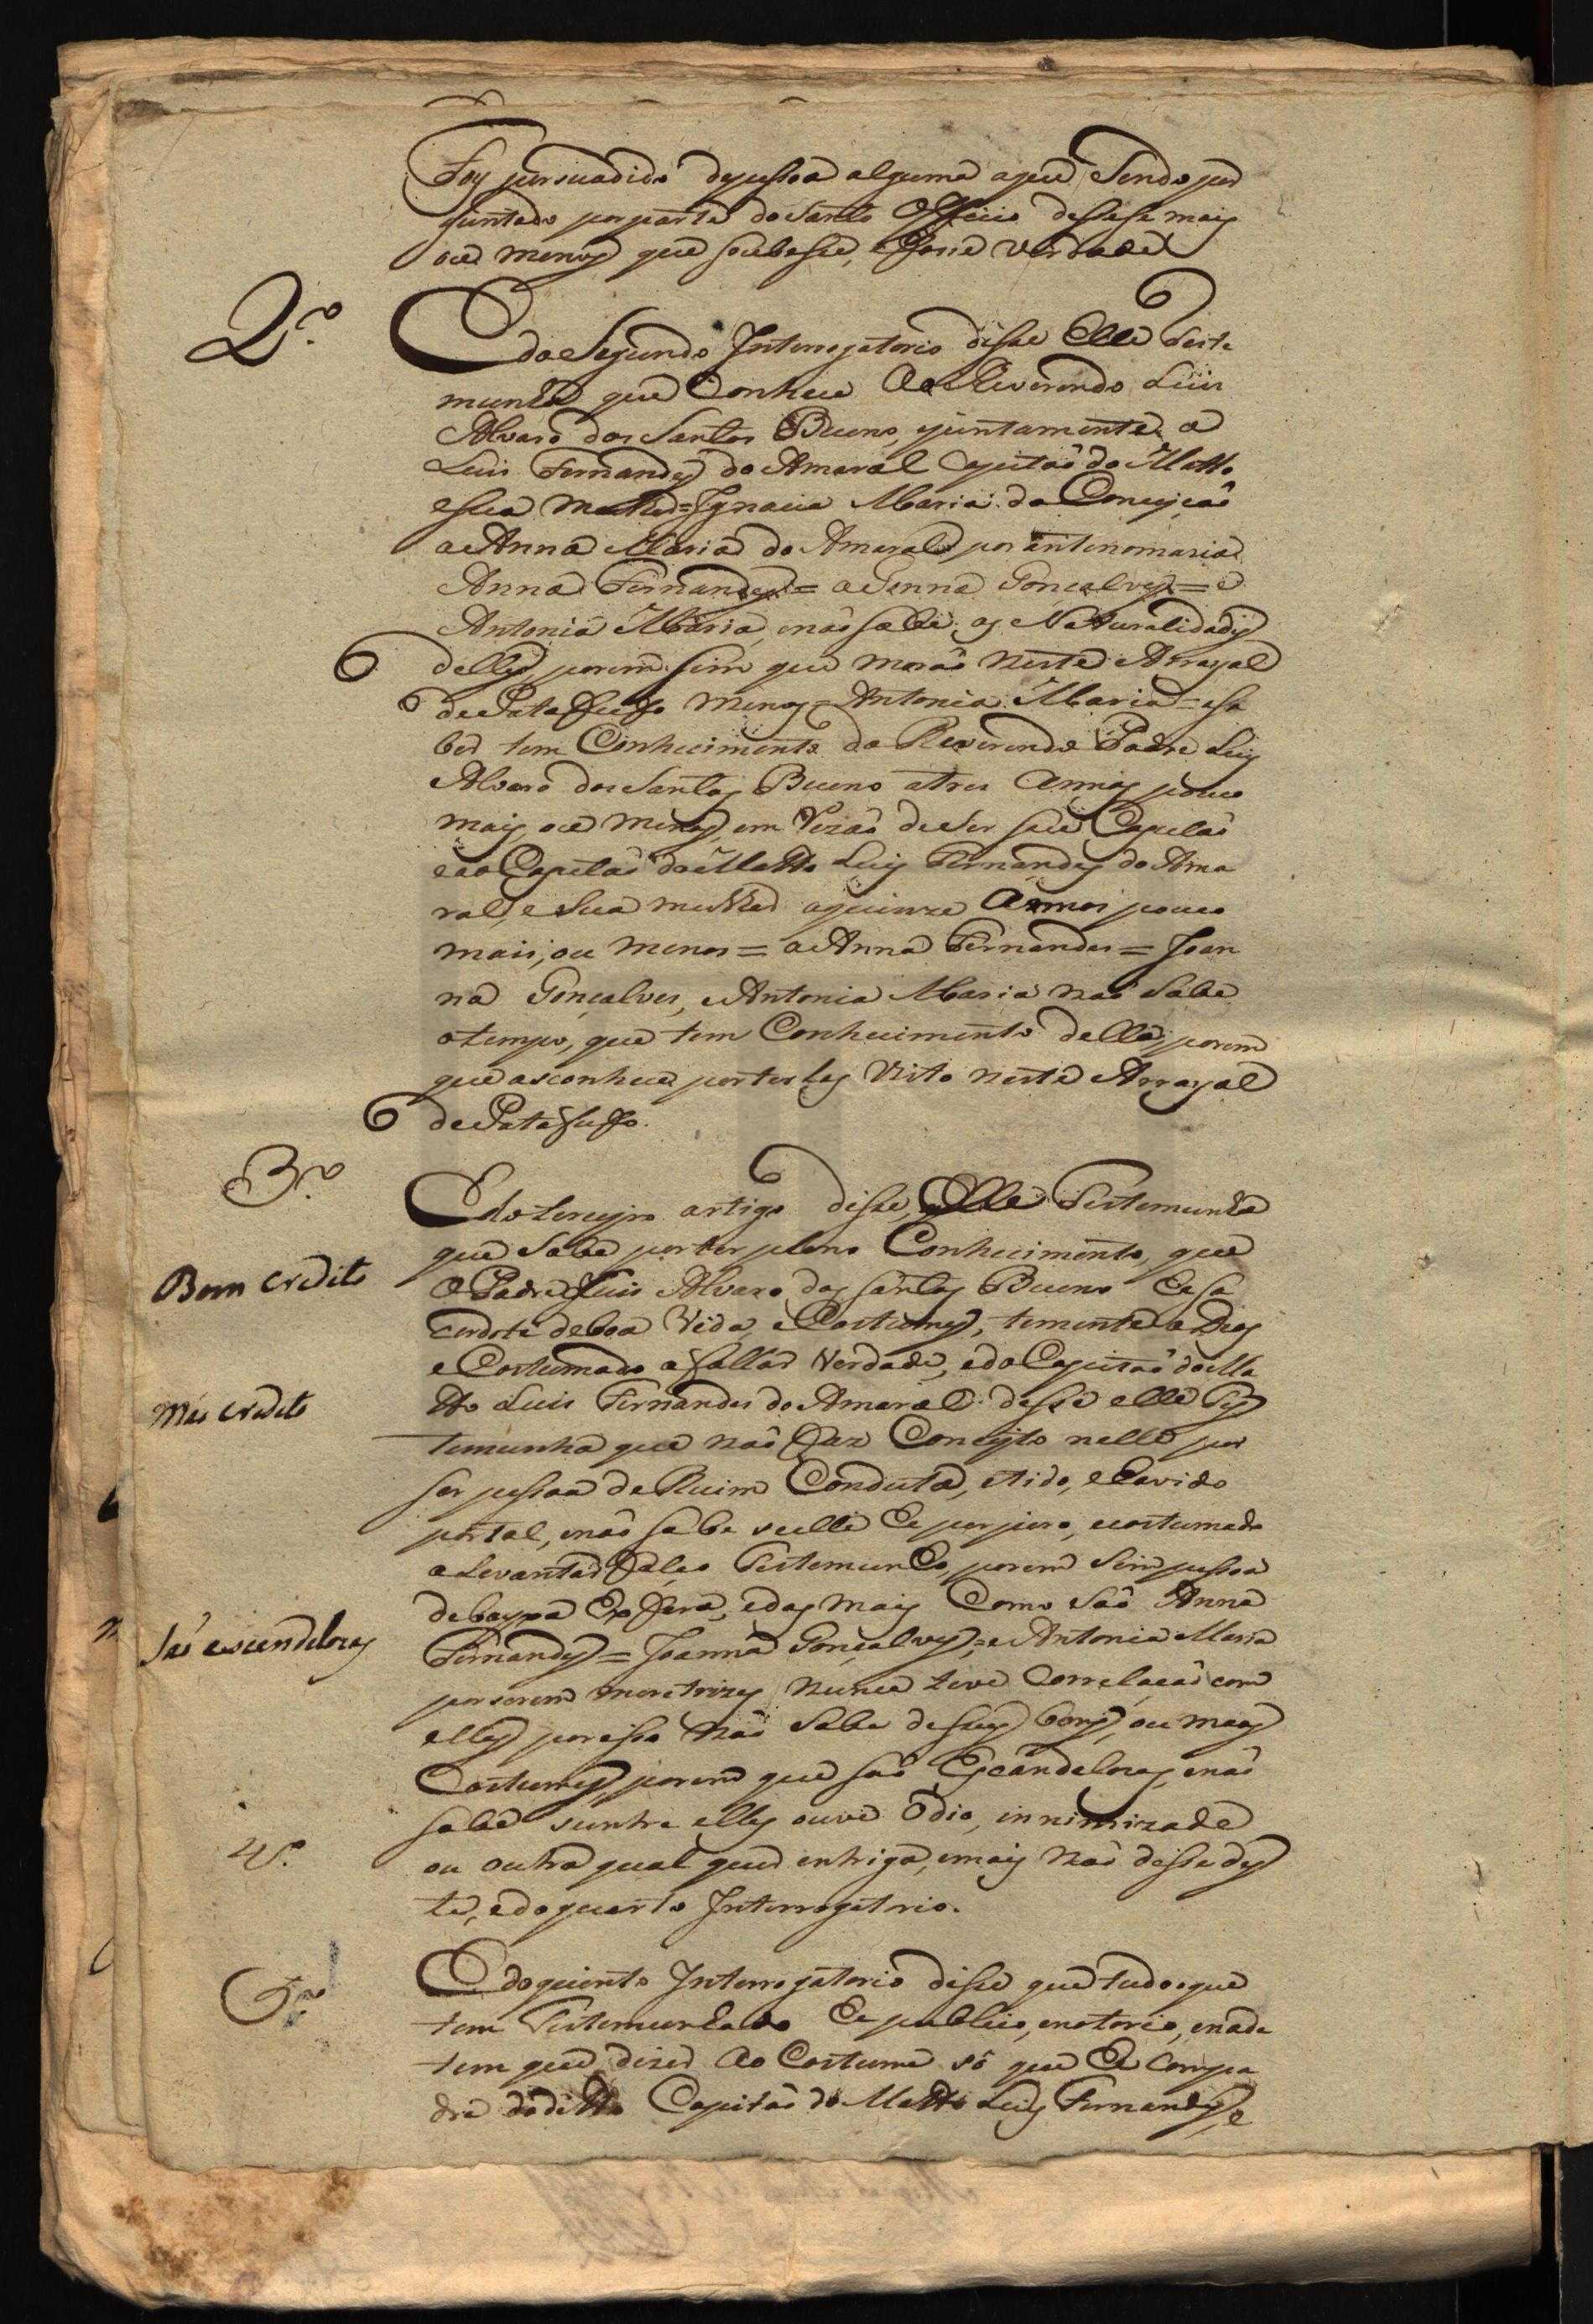 Foy persuadido de pessoa alguma a que Sendo per
guntado por parte do Santo Officio dessese mais
ou menos que soubesse, e fosse verdade
2.º
E do Segundo Interrogatorio disse Elle Teste
munha que Conhece Ao Reverendo Luis
Alvaro dos Santos Bueno, ejuntamente a
Luis Fernandes do Amaral Capitaõ do Matto
esua Mulher = Ignacia Maria da Conceyçaõ
a Anna Maria do Amaral por antenomaria
Anna Fernandes = a Joanna Gonçalves = e
Antonia Maria, enaõ sabe as Naturalidades
delles porem sim que moraõ neste Arrayal
de Patafufo menos = Antonia Maria = esa
ber tem Conhecimento do Reverendo Padre Luis
Alvaro dos Santos Bueno atres Annos pouco
mais ou menos, em Rezaõ deser seu Capelaõ
eao Capitaõ do Matto Luis Fernandes do Ama
ral, e sua mulher aquinze Annos pouco
mais, ou menos = a Anna Fernandes = Joan
na Gonçalves, e Antonia Maria naõ sabe
otempo, que tem Conhecimento dellas, porem
que as conhece por terlas Visto neste Arrayal
de Patafufo.
3.º
E do terceyro artigo disse, Elle Testemunha
que Sabe por ter pleno Conhecimento, que
Bom credito
O Padre Luis Alvaro dos Santos Bueno he sa
cerdote de boa Vida, e Costumes, temente a Deos
e Costumado afallar Verdade, e do Capitaõ do Ma
Máo credito
tto Luis Fernandes do Amaral: desse elle Tes
temunha que naõ faz Conceyto nelle por
ser pessoa de Ruim Conduta, etido, e havido
por tal, enaõ sabe se elle he perjuro, ecostumado
a Levantar falço Testemunho, porem sim pessoa
de bayxa Esfera, edas mais Como Saõ Anna
Saõ escandelozas
Fernandes = Joanna Gonçalves, = e Antonia Maria
por serem meretrizes nunca teve Correlaçaõ com
ellas por isso naõ Sabe de seus bons, ou maos
Costumes, porem que saõ Escandelozas, enaõ
sabe se entre elles ouve Odio, innimizade
4.º
ou outra qual quer intriga, emais naõ disse des
te, edoquarto Interrogatorio.
5.º
E do quinto Interrogatorio disse que tudo o que
tem Testemunhado He publico, enotorio, enada
tem que dizer Ao Costume só que He Compa
dre do ditto Capitaõ do Matto Luis Fernandes, e